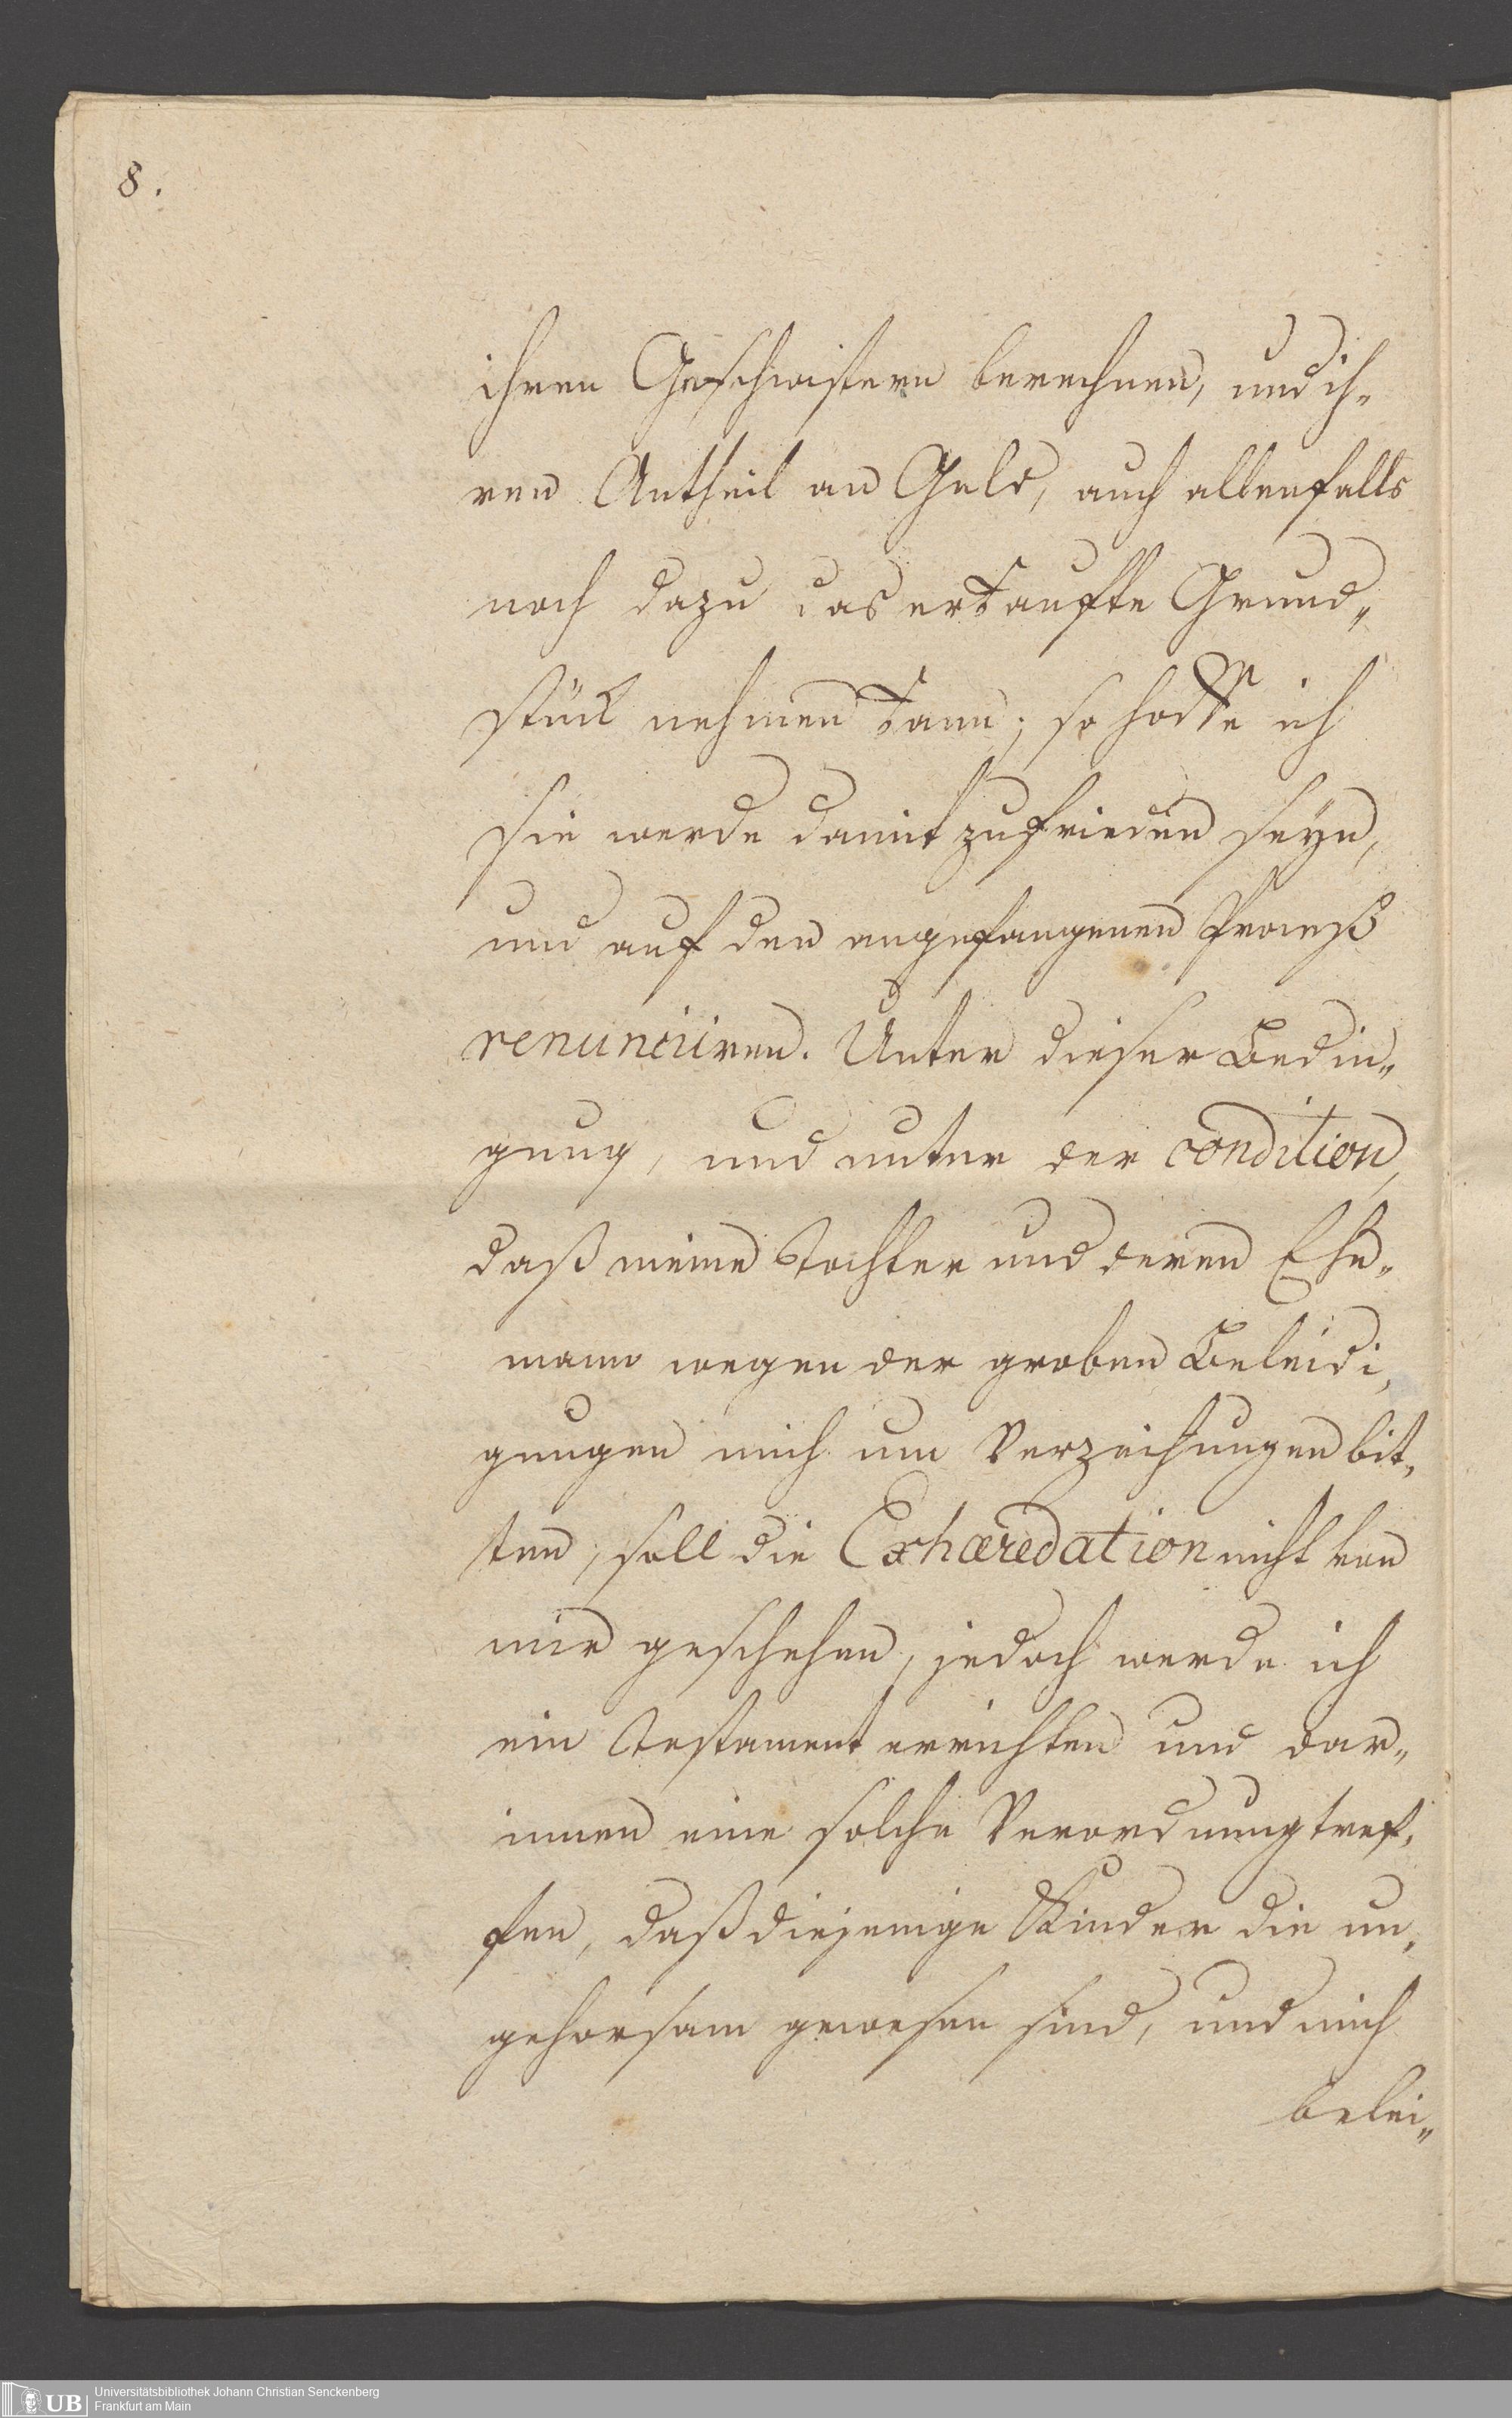 8.
ihren Geschwistern berechnen, und ih-
ren Antheil an Geld, auch allenfalls
noch dazu das erkaufte Grund„
stück nehmen kann; so hoffe ich
sie werde damit zufrieden seyn,
und auf den angefangenen Proceß
renunciiren. Unter dieser Bedin„
gung, und unter der condition,
daß meine Tochter und deren Ehe„
mann wegen der groben Beleidi„
gungen mich um Verzeihungen bit„
ten, soll die Exhæredation nicht von
mir geschehen, jedoch werde ich
ein Testament errichten und dar„
innen eine solche Verordnung tref„
fen, daß diejenige Kinder die un„
gehorsam gewesen sind, und mich
belei„
UB Universitätsbibliothek Johann Christian Senckenberg
Frankfurt am Main